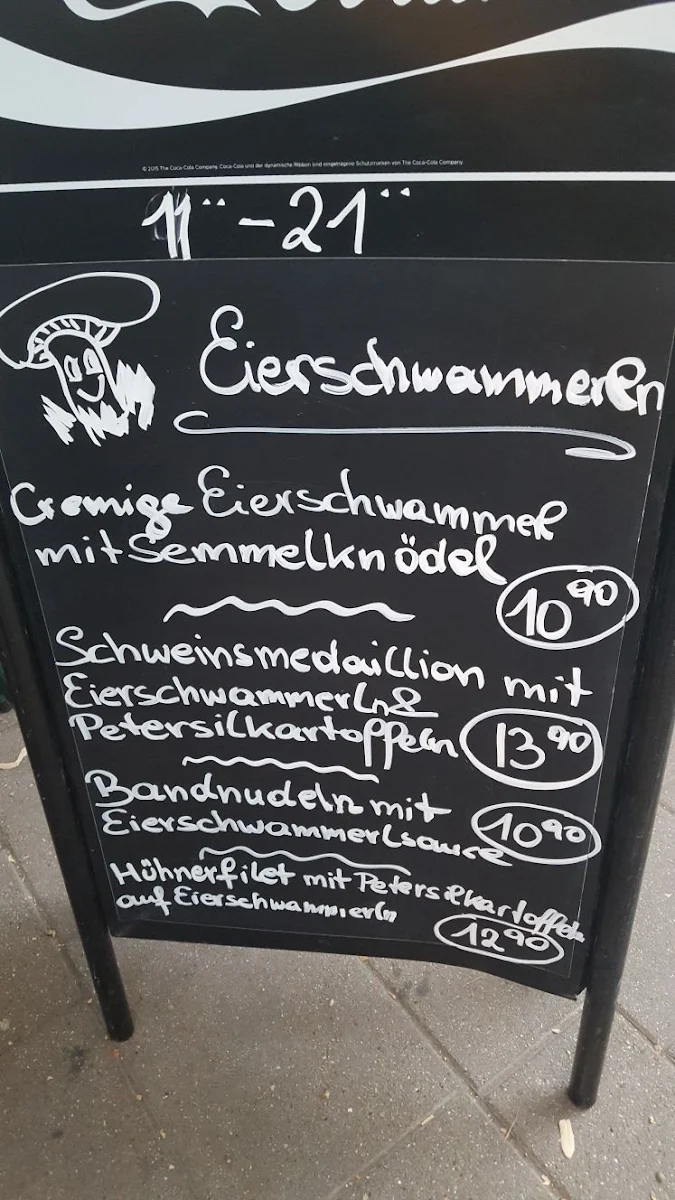 © 2015 The Coca-Cola Company. Coca-Cola und der dynamische Ribbon sind eingetragene Schutzmarken von The Coca-Cola Company
11 - 21
Eierschwammerln
Cremige Eierschwammel
mit Semmelknödel
10 90
Schweinsmedaillion mit
Eierschwammerln &
Petersilkartoffeln 13 90
Bandnudeln mit
Eierschwammerlsauce 10 90
Hühnerfilet mit Petersilkartoffeln
auf Eierschwammerln
12 90